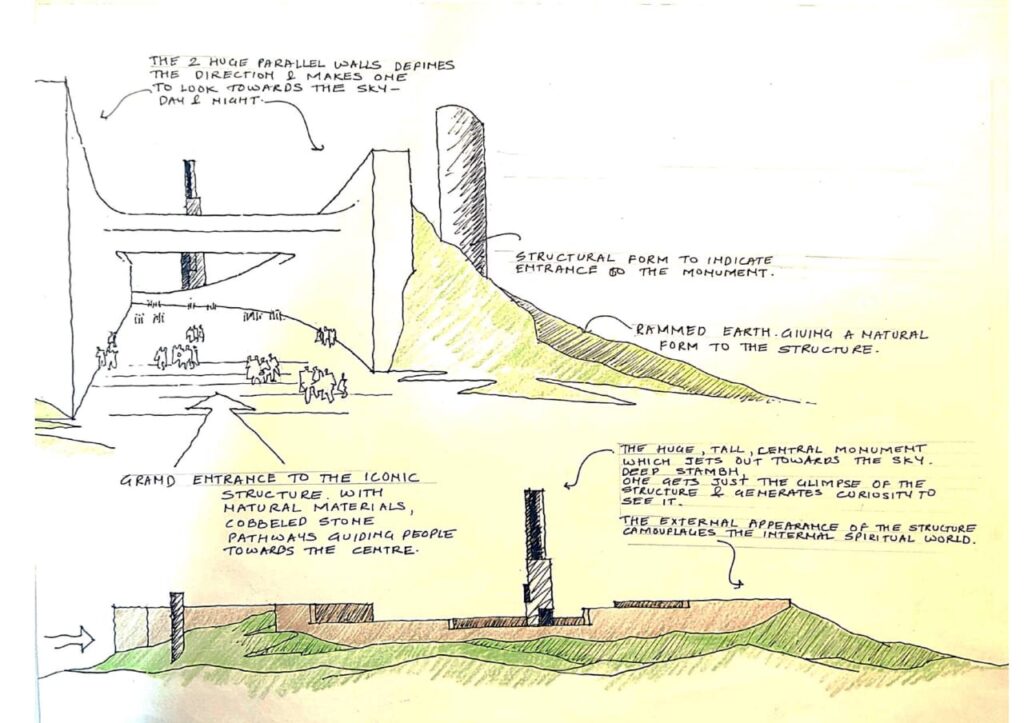 THE 2 HUGE PARALLEL WALLS DEFINES
THE DIRECTION & MAKES ONE
TO LOOK TOWARDS THE SKY –
DAY & NIGHT.
STRUCTURAL FORM TO INDICATE
ENTRANCE TO THE MONUMENT.
RAMMED EARTH. GIVING A NATURAL
FORM TO THE STRUCTURE.
GRAND ENTRANCE TO THE ICONIC
STRUCTURE. WITH
NATURAL MATERIALS,
COBBELED STONE
PATHWAYS GUIDING PEOPLE
TOWARDS THE CENTRE.
THE HUGE, TALL, CENTRAL MONUMENT
WHICH JETS OUT TOWARDS THE SKY.
DEEP STAMBH,
ONE GETS JUST THE GLIMPSE OF THE
STRUCTURE & GENERATES CURIOSITY TO
SEE IT.
THE EXTERNAL APPEARANCE OF THE STRUCTURE
CAMOUFLAGES THE INTERNAL SPIRITUAL WORLD.